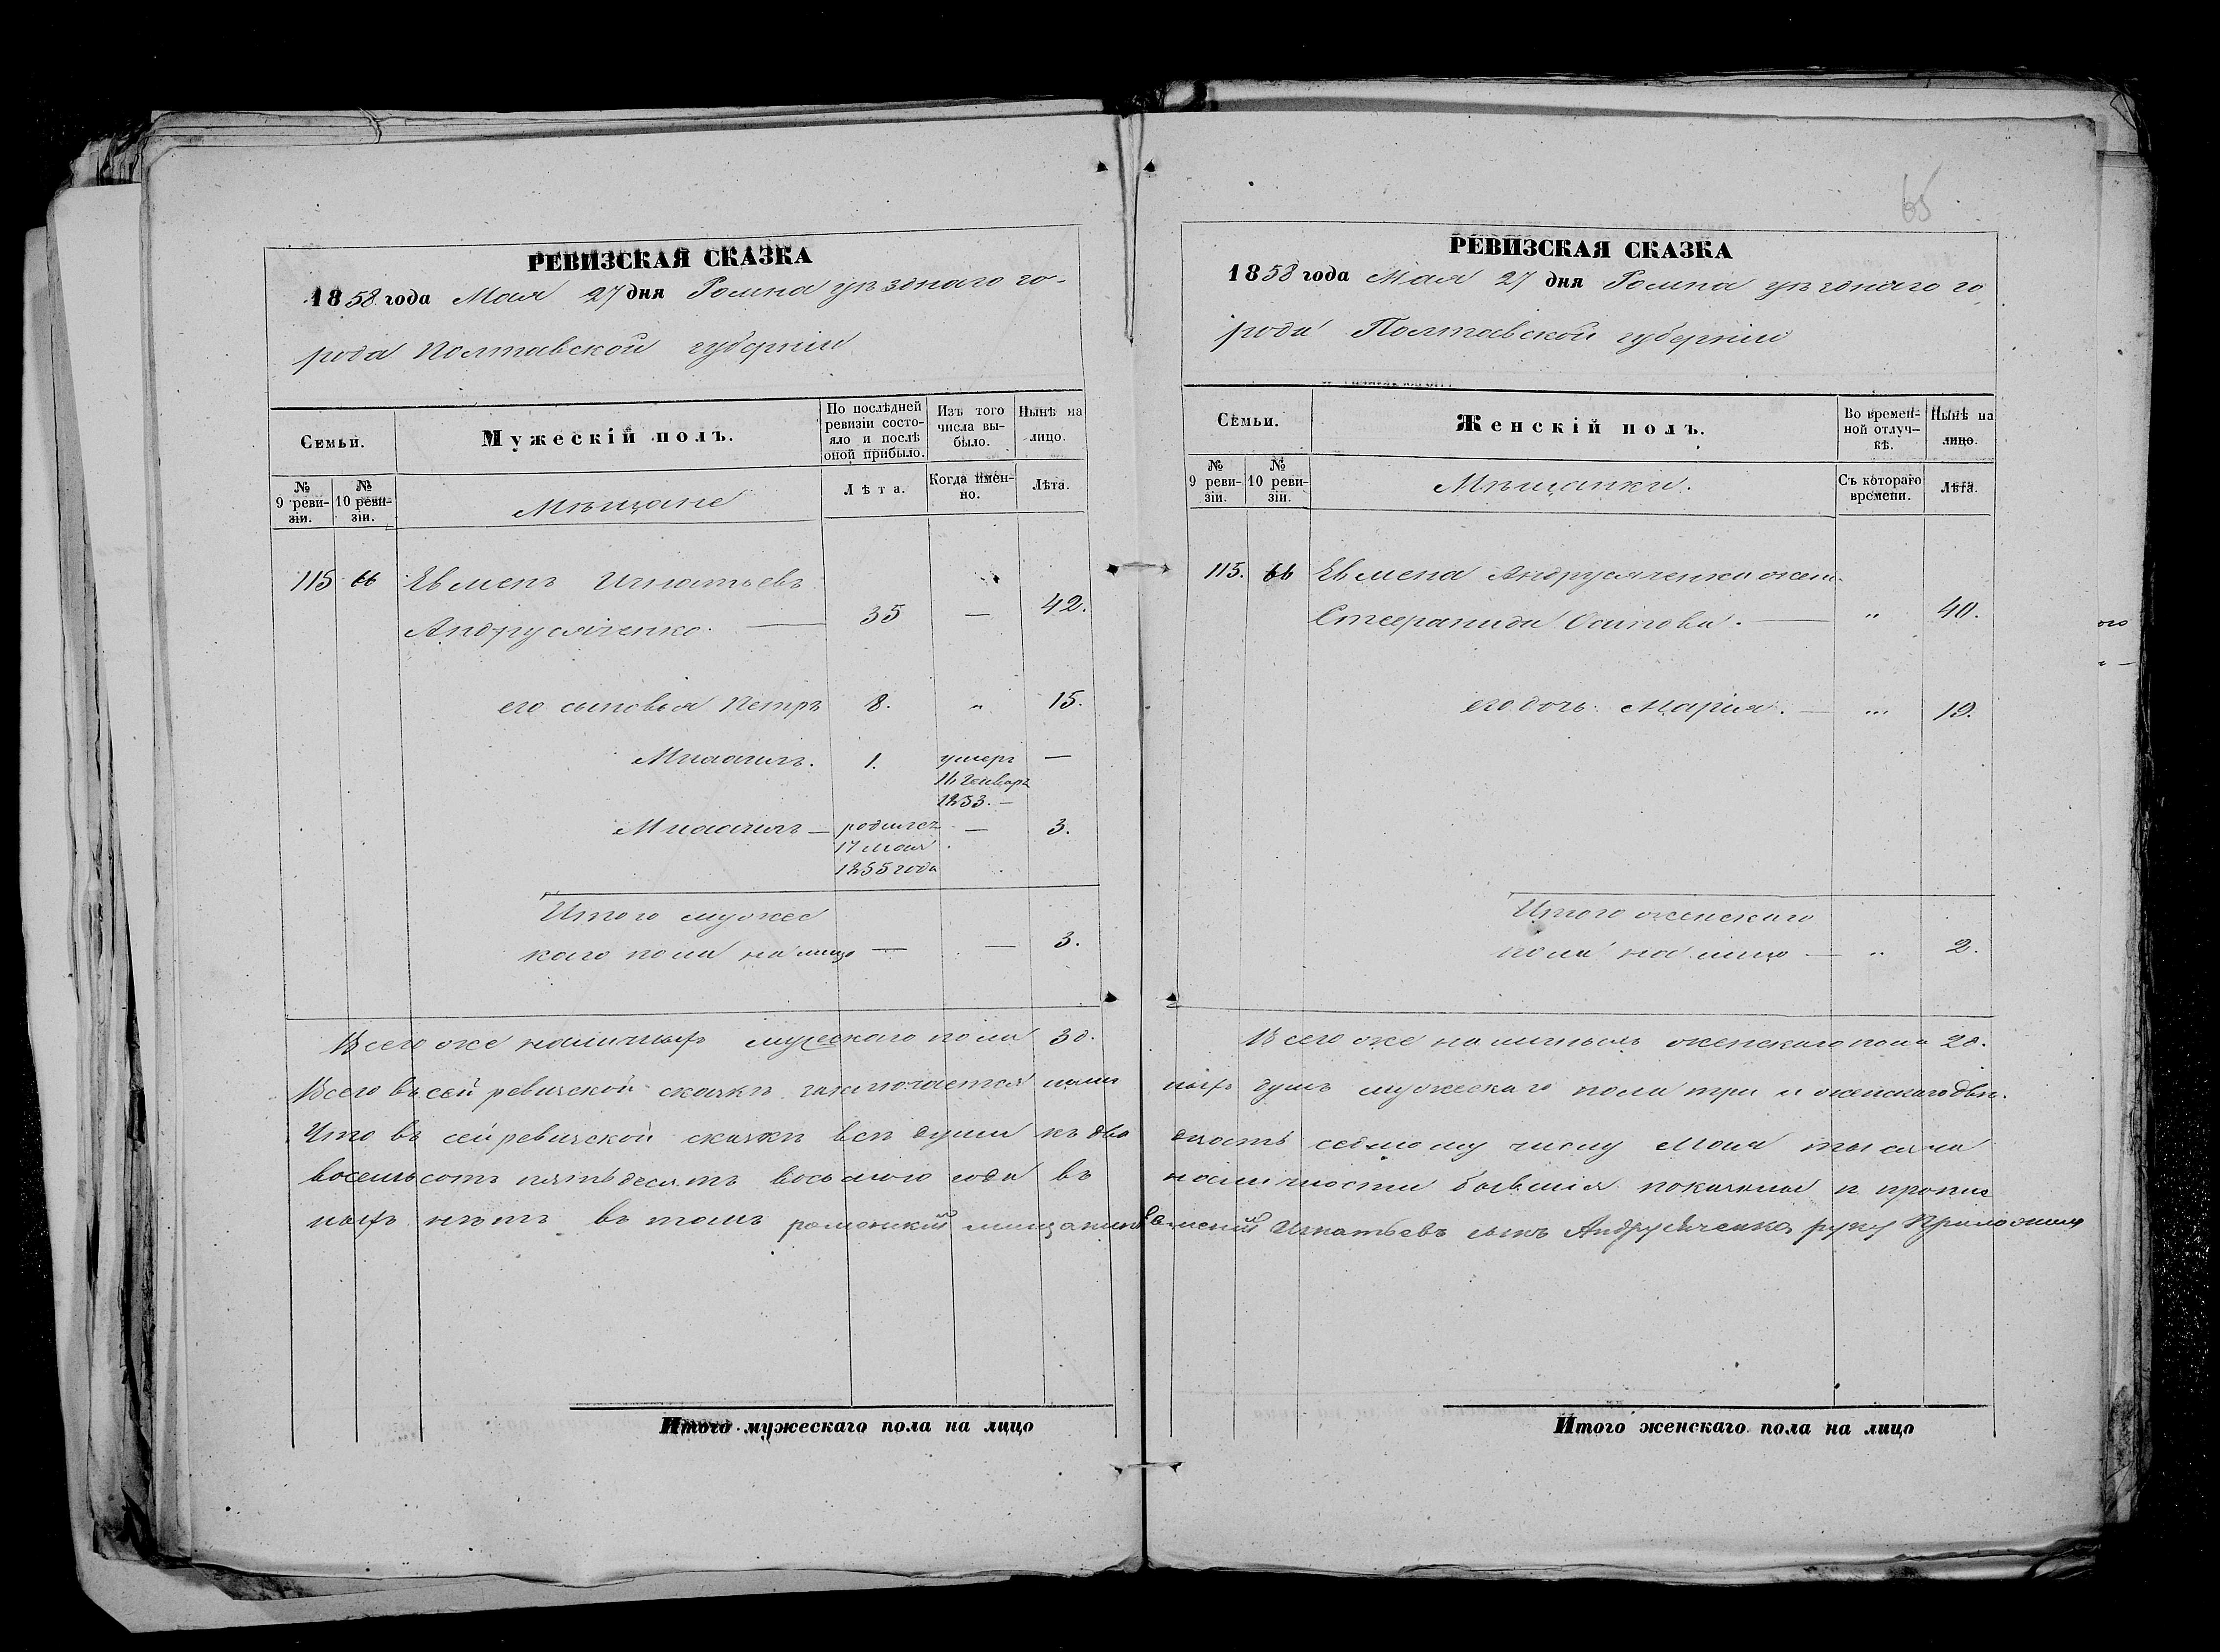 65
РЕВИЗСКАЯ СКАЗКА
1858 года Мая 27 дня Ромна уѣзднаго го-
рода Полтавской губерніи
Семьи.
Мужескій полъ.
По послѣдней ревизіи состо-яло и послѣ оной прибыло.
Изъ того числа вы-было.
Нынѣ на лицо.
№ 9 реви-зіи.
№ 10 реви-зіи.
Мѣщане
Лѣта.
Когда имен-но.
Лѣта.
115 66 Евменъ Игнатьевъ
Андрусяченко. — 35 — 42.
его сыновья Петръ 8. " 15.
Михаилъ. 1. умеръ —
16 Генваря
1853. —
Михаилъ — родился — 3.
17 мая
1855 года
Итого мужес
каго пола на лицо — — 3.
Всего же наличныхъ мужескаго пола 3 д.
Всего въ сей ревизской сказкѣ заключается налич
Что въ сей ревизской сказкѣ всѣ души къ два
восемьсотъ пятьдесятъ восьмого года въ
ныхъ нѣтъ въ томъ роменскій мещанинъ
Итого мужескаго пола на лицо
РЕВИЗСКАЯ СКАЗКА
1858 года Мая 27 дня Ромна уѣзднаго го
рода Полтавской губерніи
Семьи.
Женскій полъ.
Во времен-ной отлуч-кѣ.
Нынѣ на лицо.
№ 9 реви-зіи.
№ 10 реви-зіи.
Мѣщанки.
Съ котораго времени.
Лѣта.
115. 66 Евмена Андрусяченки жена
Осипова. — " 40.
его дочь Марія. — " 19.
Итого женскаго
пола на лицо — " 2.
Всего же наличныхъ женскаго пола 2 д.
ныхъ душъ мужескаго пола три и женскаго двѣ.
дцать седмому числу Мая тысяча
наличности бывшія показаны и пропис
Игнатьевъ сынъ Андрусяченко руку приложилъ
Итого женскаго пола на лицо